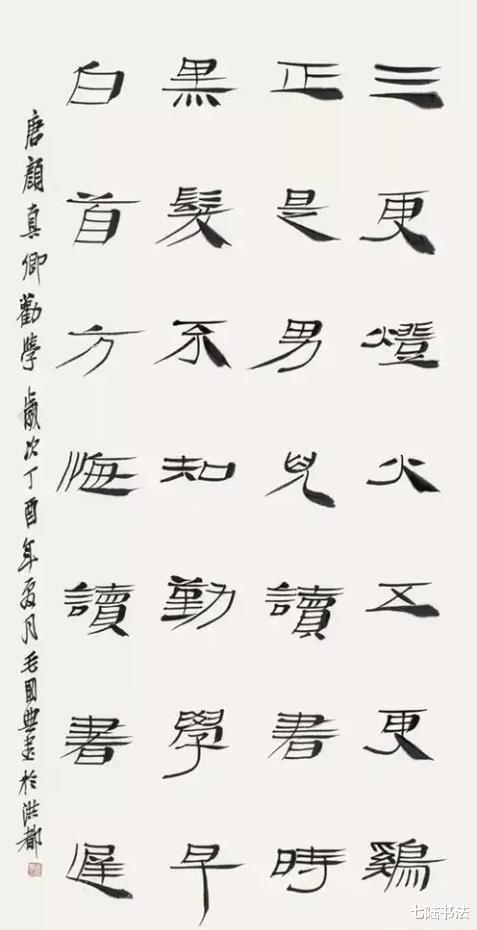 三更燈火五更鷄
正是男兒讀書時
黑髮不知勤學早
白首方悔讀書遲
唐顏真卿勸學 歲次丁酉年夏月毛國典書於洪都
七陆书法